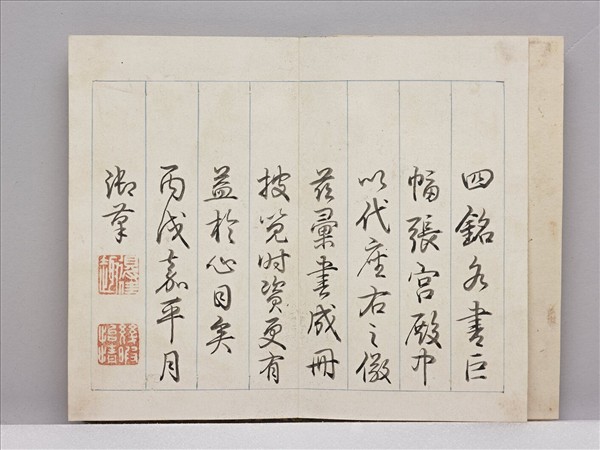 四銘各書巨
幅張宮殿中
以代座右之儆
茲彙書成冊
披覽時資更有
益於心目矣
丙戌嘉平月
御筆
得佳趣
幾暇怡情